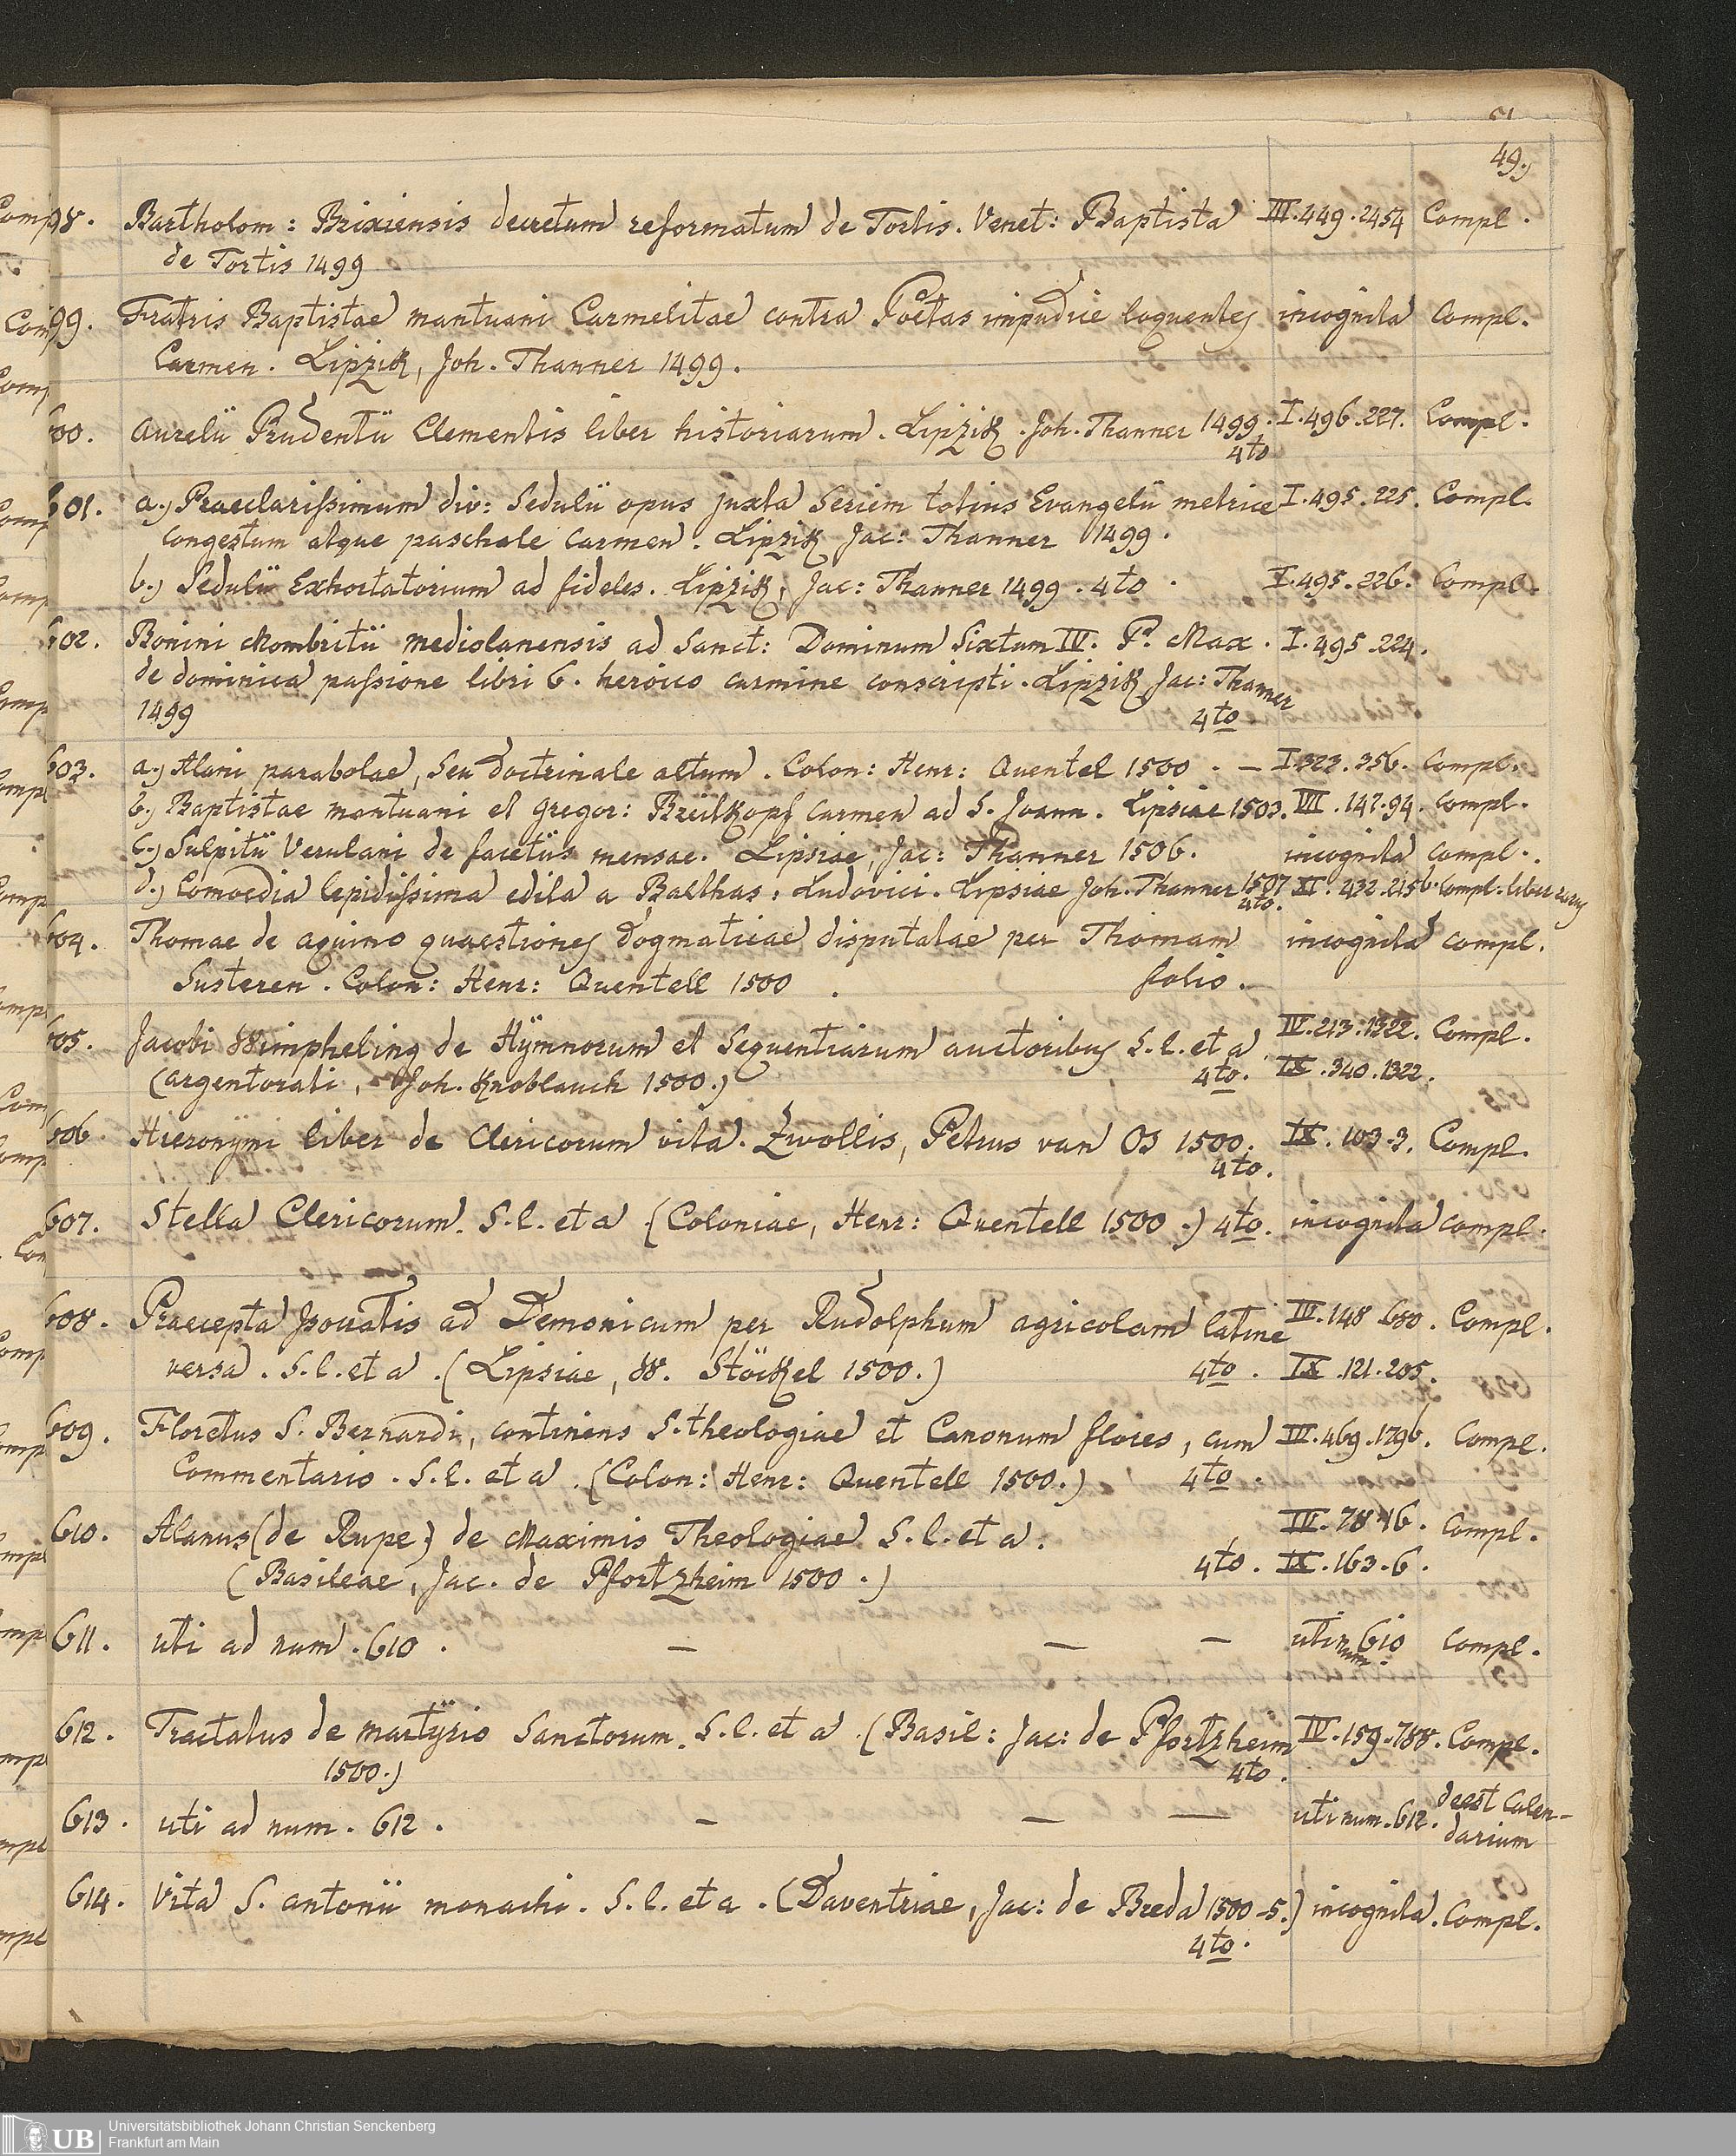 49.
98. Bartholom: Brixiensis decretum reformatum de Tortis. Venet: Baptista III.449.2454 Compl.
de Tortis 1499
99. Fratris Baptistae mantuani Carmelitae contra Poëtas impudice loquentes incognita Compl.
Carmen. Lipzik, Joh. Thanner 1499.
600. Aurelii Prudentii Clementis liber historiarum. Lipzik. Joh. Thanner 1499. I.496.227. Compl.
4to
601. a.) Praeclarissimum div: Sedulii opus juxta Seriem totius Evangelii metrice I.495.225. Compl.
Congestum atque paschale Carmen. Lipzik Jac: Thanner 1499.
b.) Sedulii Exhortatorium ad fideles. Lipzik, Jac: Thanner 1499. 4to. I.495.226. Compl.
602. Bonini Mombritii mediolanensis ad Sanct: Dominum Sixtum IV. P. Max. I.495.224.
de dominica passione libri 6. heroico carmine conscripti. Lipzik Jac: Thanner
1499 4to
603. a.) Alani parabolae, seu doctrinale altum. Colon: Henr: Quentel 1500. — I.323.356. Compl.
b.) Baptistae mantuani et Gregor: Breitkopf Carmen ad S. Joann. Lipsiae 1503. VII.147.94. Compl.
c.) Sulpitii Verulani de facetiis mensae. Lipsiae, Jac: Thanner 1506. incognita compl.
d.) Comoedia lepidissima edita a Balthas: Ludovici. Lipsiae Joh. Thanner 1507 XI.432.215b. Compl. liber rarus
4to.
604. Thomae de aquino quaestiones dogmaticae disputatae per Thomam incognita compl.
Susteren. Colon: Henr: Quentell 1500. folio.
605. Jacobi Wimpheling de Hÿmnorum et Sequentiarum auctoribus S.l. et a IV.213.1322. Compl.
(argentorati, Joh. Knoblauch 1500.) 4to. IX.340.1322.
606. Hieronymi liber de Clericorum vita. Zwollis, Petrus van Os 1500. IX.103.3. Compl.
4to.
607. Stella Clericorum. S.l. et a (Coloniae, Henr: Quentell 1500.) 4to. incognita compl.
608. Praecepta Isocratis ad Demonicum per Rudolphum agricolam latine IV.148.680. Compl.
versa. S.l. et a. (Lipsiae, W. Stöckel 1500.) 4to. IX.121.205.
609. Floretus S. Bernardi, continens S. theologiae et Canonum flores, cum III.469.1796. Compl.
Commentario. S.l. et a. (Colon: Henr: Quentell 1500.) 4to.
610. Alanus (de Rupe) de Maximis Theologiae S.l. et a. IV.78.16. Compl.
(Basileae, Jac. de Pfortzheim 1500.) 4to. IX.163.6.
611. uti ad num. 610. — — — uti num. 610 Compl.
612. Tractatus de martÿrio Sanctorum. S.l. et a. (Basil: Jac: de Pfortzheim IV.159.788. Compl.
1500.) 4to.
613. uti ad num. 612. — — — uti num. 612. deest Calen-
darium
614. Vita S. antonii monachi. S.l. et a. (Daventriae, Jac: de Breda 1500-5.) incognita. Compl.
4to.
UB Universitätsbibliothek Johann Christian Senckenberg
Frankfurt am Main